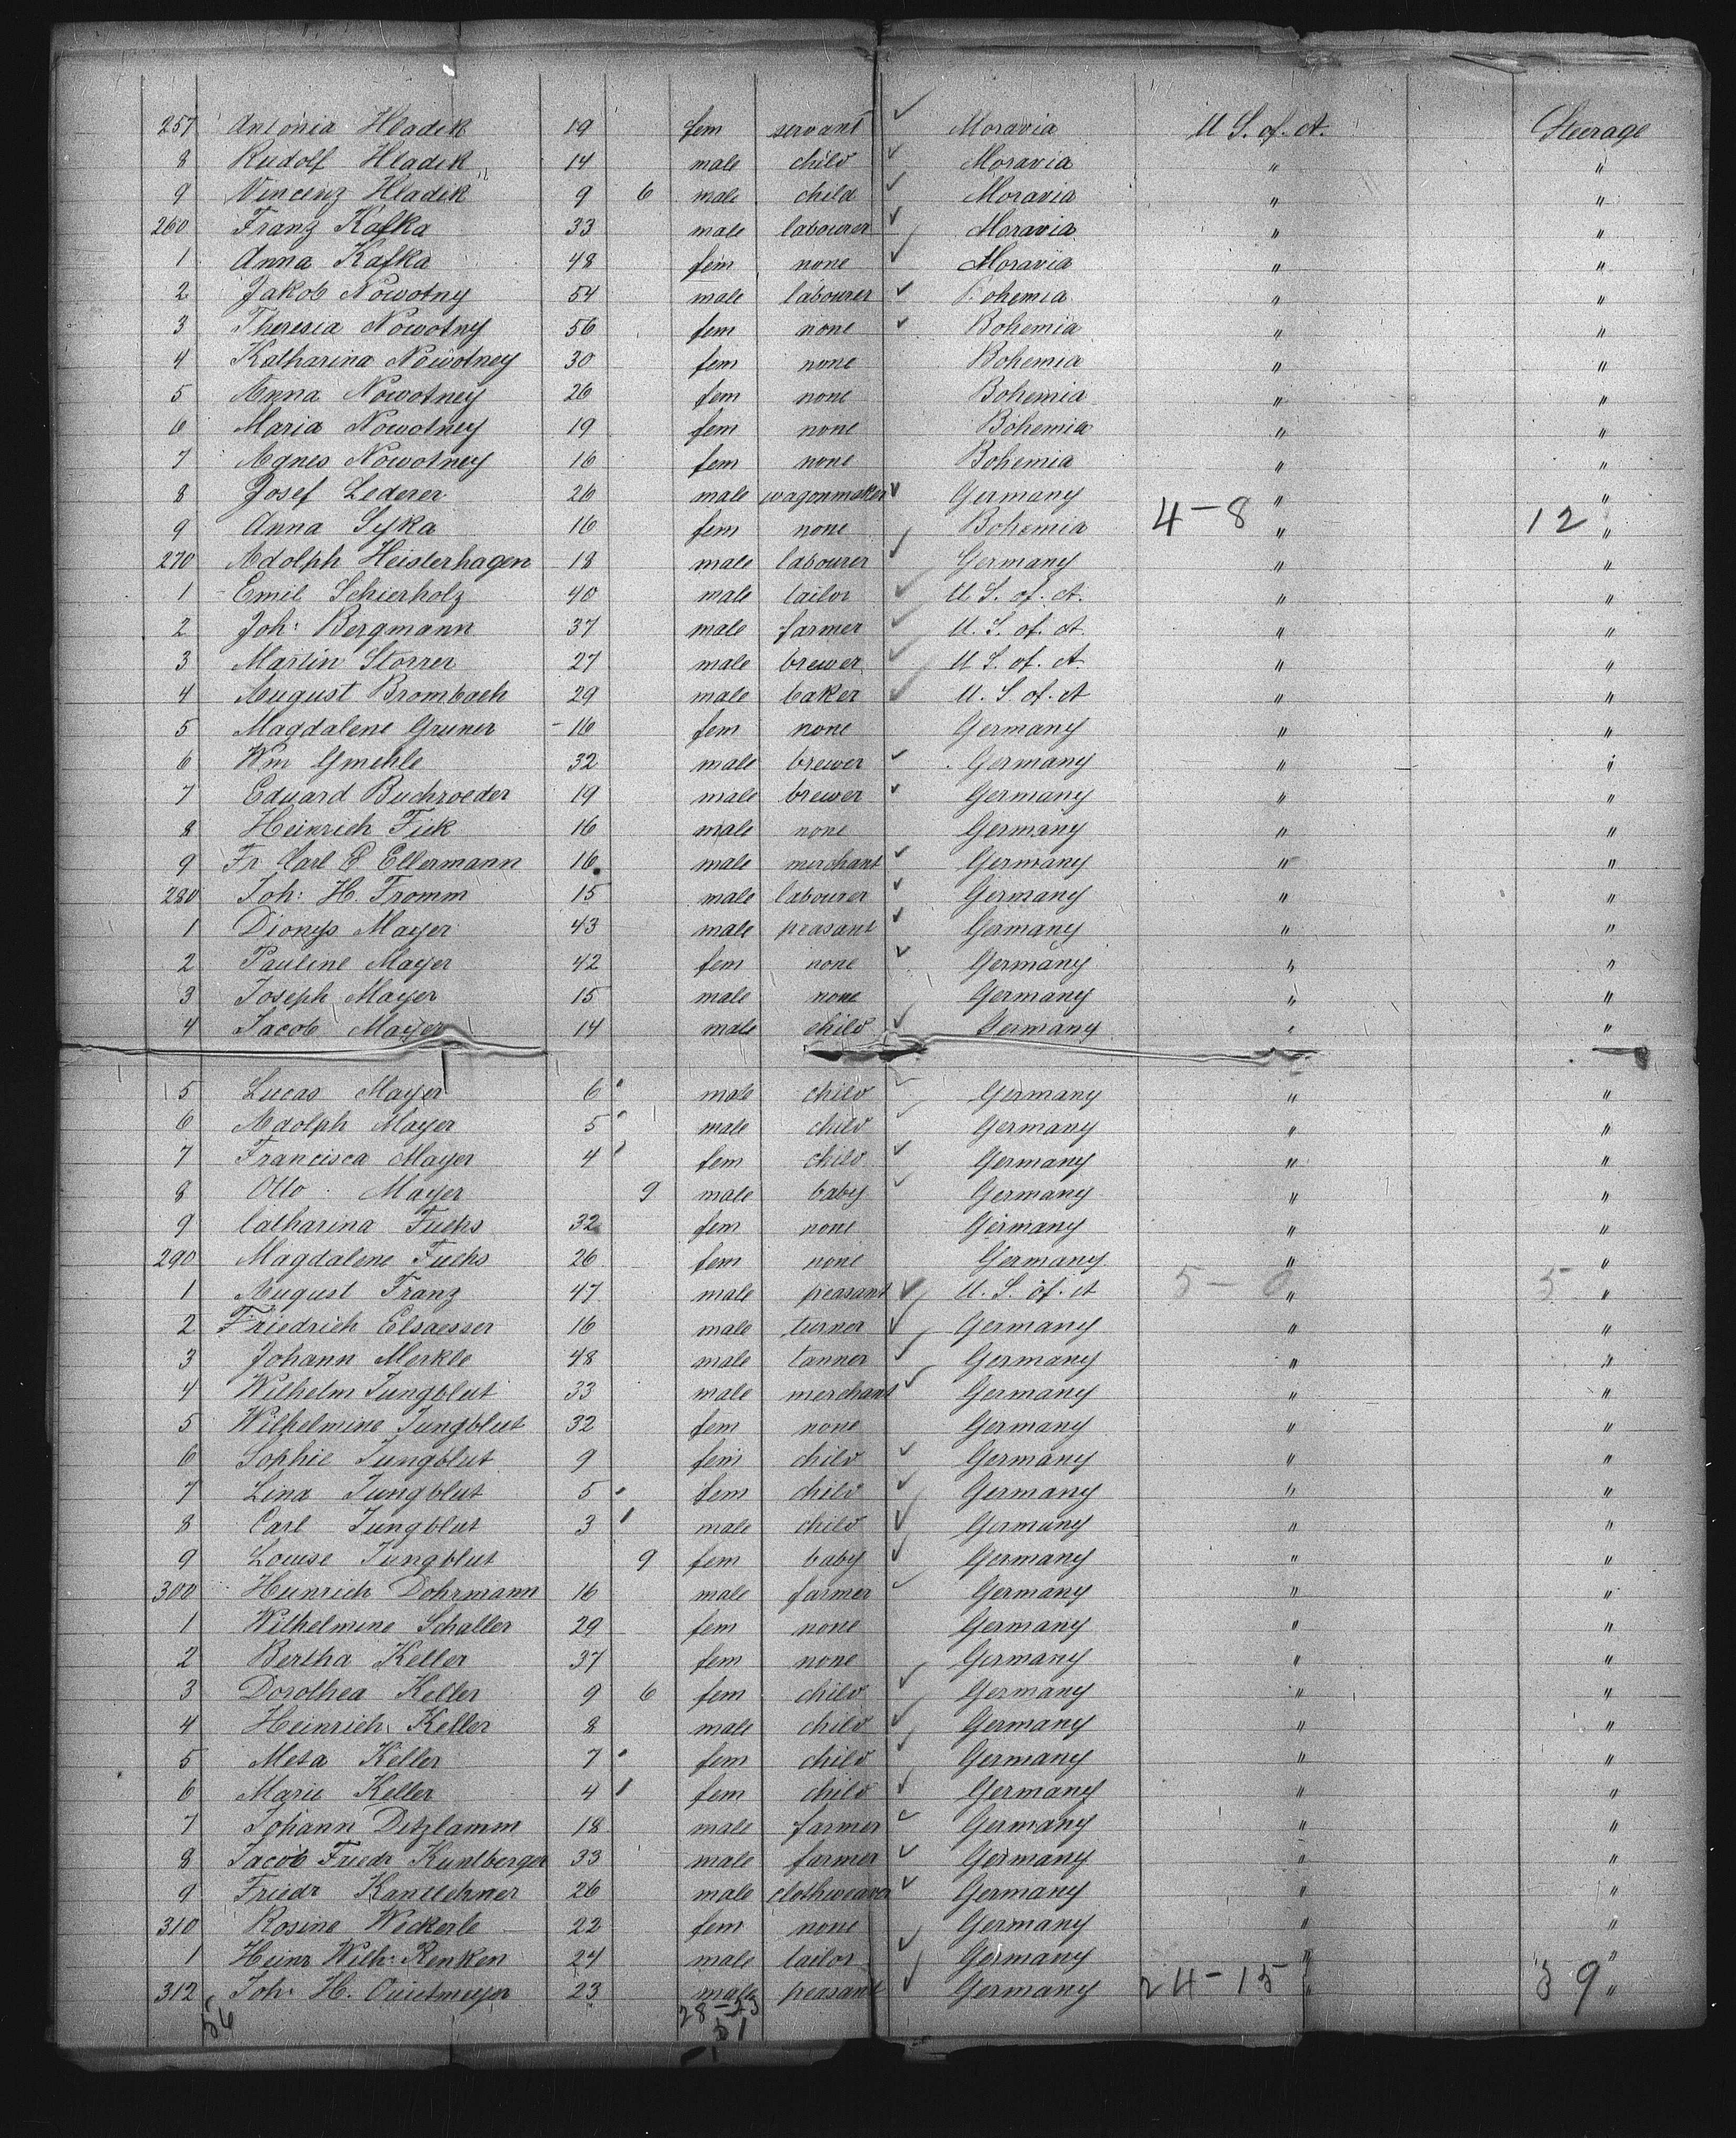 257 Antonia Hladek 19 fem servant ✓ Moravia U. S. of. A. Steerage
8 Rudolf Hladek 14 male child ✓ Moravia " "
9 Vincenz Hladek 9 6 male child ✓ Moravia " "
260 Franz Kafka 33 male labourer ✓ Moravia " "
1 Anna Kafka 48 fem none ✓ Moravia " "
2 Jakob Nowotny 54 male labourer ✓ Bohemia " "
3 Theresia Nowotny 56 fem none ✓ Bohemia " "
4 Katharina Nowotney 30 fem none Bohemia " "
5 Anna Nowotney 26 fem none Bohemia " "
6 Maria Nowotney 19 fem none Bohemia " "
7 Agnes Nowotney 16 fem none Bohemia " "
8 Josef Lederer 26 male wagonmaker ✓ Germany " "
9 Anna Syka 16 fem none Bohemia 4-8 " 12 "
270 Adolph Heisterhagen 18 male labourer ✓ Germany " "
1 Emil Schierholz 40 male tailor ✓ U. S. of. A. " "
2 Joh: Bergmann 37 male farmer ✓ U. S. of. A " "
3 Martin Storrer 27 male brewer ✓ U. S. of. A " "
4 August Brombach 29 male baker ✓ U. S. of. A " "
5 Magdalene Gruner 16 fem none Germany " "
6 Wm Gmehle 32 male brewer ✓ Germany " "
7 Eduard Buchroeder 19 male brewer ✓ Germany " "
8 Heinrich Fick 16 male none Germany " "
9 Fr. Carl Ellermann 16 male merchant ✓ Germany " "
280 Joh: H. Fromm 15 male labourer ✓ Germany " "
1 Dionys Mayer 43 male peasant ✓ Germany " "
2 Pauline Mayer 42 fem none ✓ Germany " "
3 Joseph Mayer 15 male none Germany " "
4 Jacob Mayer 14 male child ✓ Germany " "
5 Lucas Mayer 6 male child ✓ Germany " "
6 Adolph Mayer 5 male child ✓ Germany " "
7 Francisca Mayer 4 fem child ✓ Germany " "
8 Otto Mayer 9 male baby ✓ Germany " "
9 Catharina Fuchs 32 fem none Germany " "
290 Magdalene Fuchs 26 fem none Germany " "
1 August Franz 47 male peasant ✓ U. S. of. A 5-0 " 5 "
2 Friedrich Elsaesser 16 male turner ✓ Germany " "
3 Johann Merkle 48 male tanner ✓ Germany " "
4 Wilhelm Jungblut 33 male merchant ✓ Germany " "
5 Wilhelmine Jungblut 32 fem none Germany " "
6 Sophie Jungblut 9 fem child ✓ Germany " "
7 Lina Jungblut 5 fem child ✓ Germany " "
8 Carl Jungblut 3 male child ✓ Germany " "
9 Louise Jungblut 9 fem baby ✓ Germany " "
300 Heinrich Dohrmann 16 male farmer ✓ Germany " "
1 Wilhelmine Schaller 29 fem none Germany " "
2 Bertha Keller 37 fem none Germany " "
3 Dorothea Keller 9 6 fem child ✓ Germany " "
4 Heinrich Keller 8 male child ✓ Germany " "
5 Meta Keller 7 fem child ✓ Germany " "
6 Marie Keller 4 fem child ✓ Germany " "
7 Johann Detzlamm 18 male farmer ✓ Germany " "
8 Jacob Friedr Kuntberger 33 male farmer ✓ Germany " "
9 Friedr 26 male clothweaver ✓ Germany " "
310 Rosine Weckerle 22 fem none Germany " "
1 Heinr Wilh: Renken 24 male tailor ✓ Germany " "
312 Joh: H. 23 male peasant ✓ Germany 24-15 " 39 "
56 28-23
51